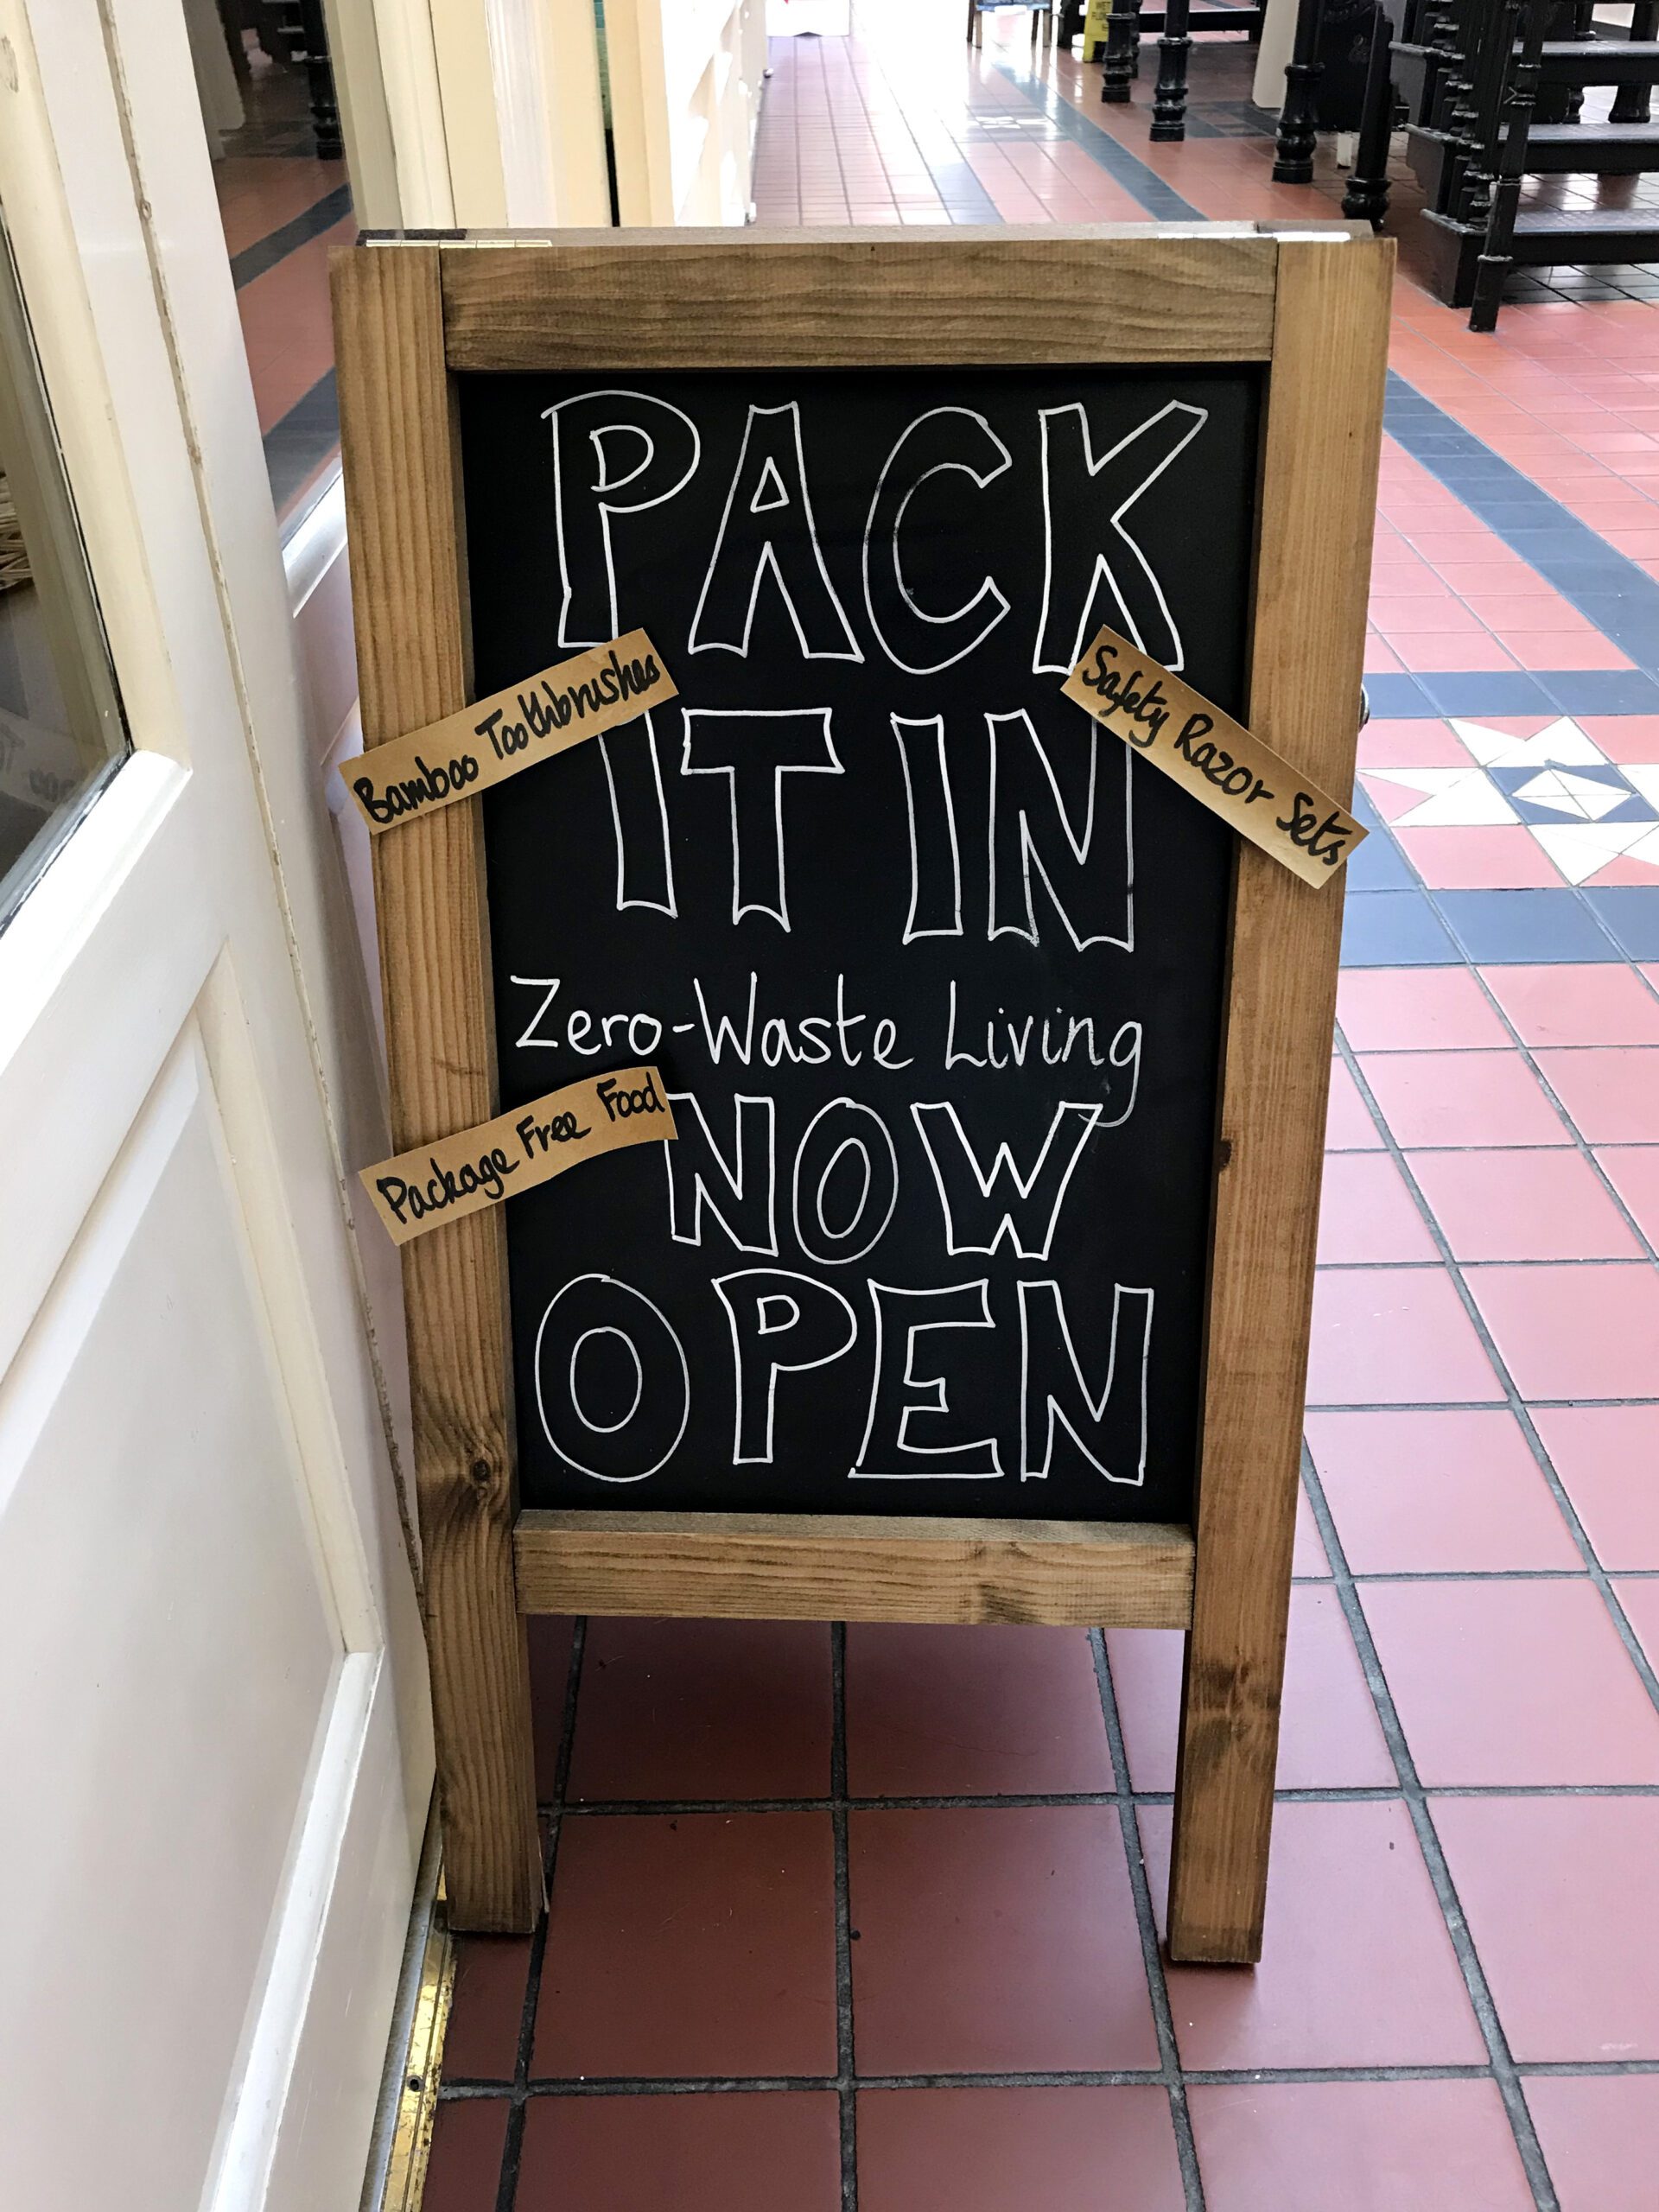 PACK
Bamboo Toothbrushes
Safety Razor Sets
IT IN
Zero-Waste Living
Package Free Food
NOW
OPEN